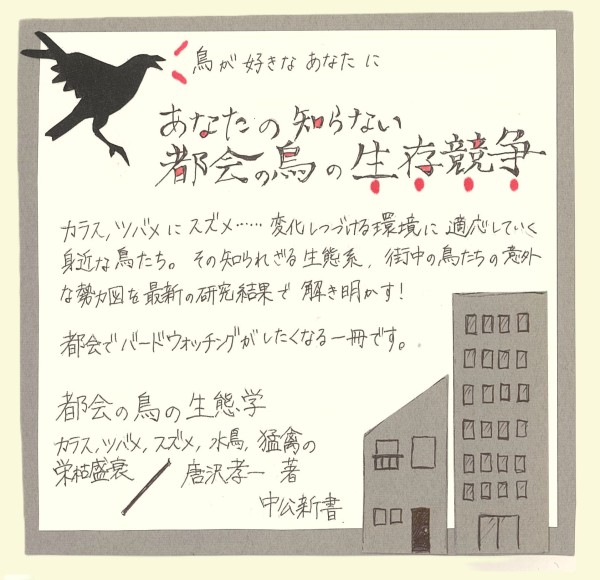 鳥が好きなあなたに
あなたの知らない
都会の鳥の生存競争
カラス,ツバメにスズメ……変化しつづける環境に適応していく
身近な鳥たち。その知られざる生態系,街中の鳥たちの意外
な勢力図を最新の研究結果で解き明かす!
都会でバードウォッチングがしたくなる一冊です。
都会の鳥の生態学
カラス,ツバメ,スズメ,水鳥,猛禽の
栄枯盛衰/唐沢孝一 著
中公新書